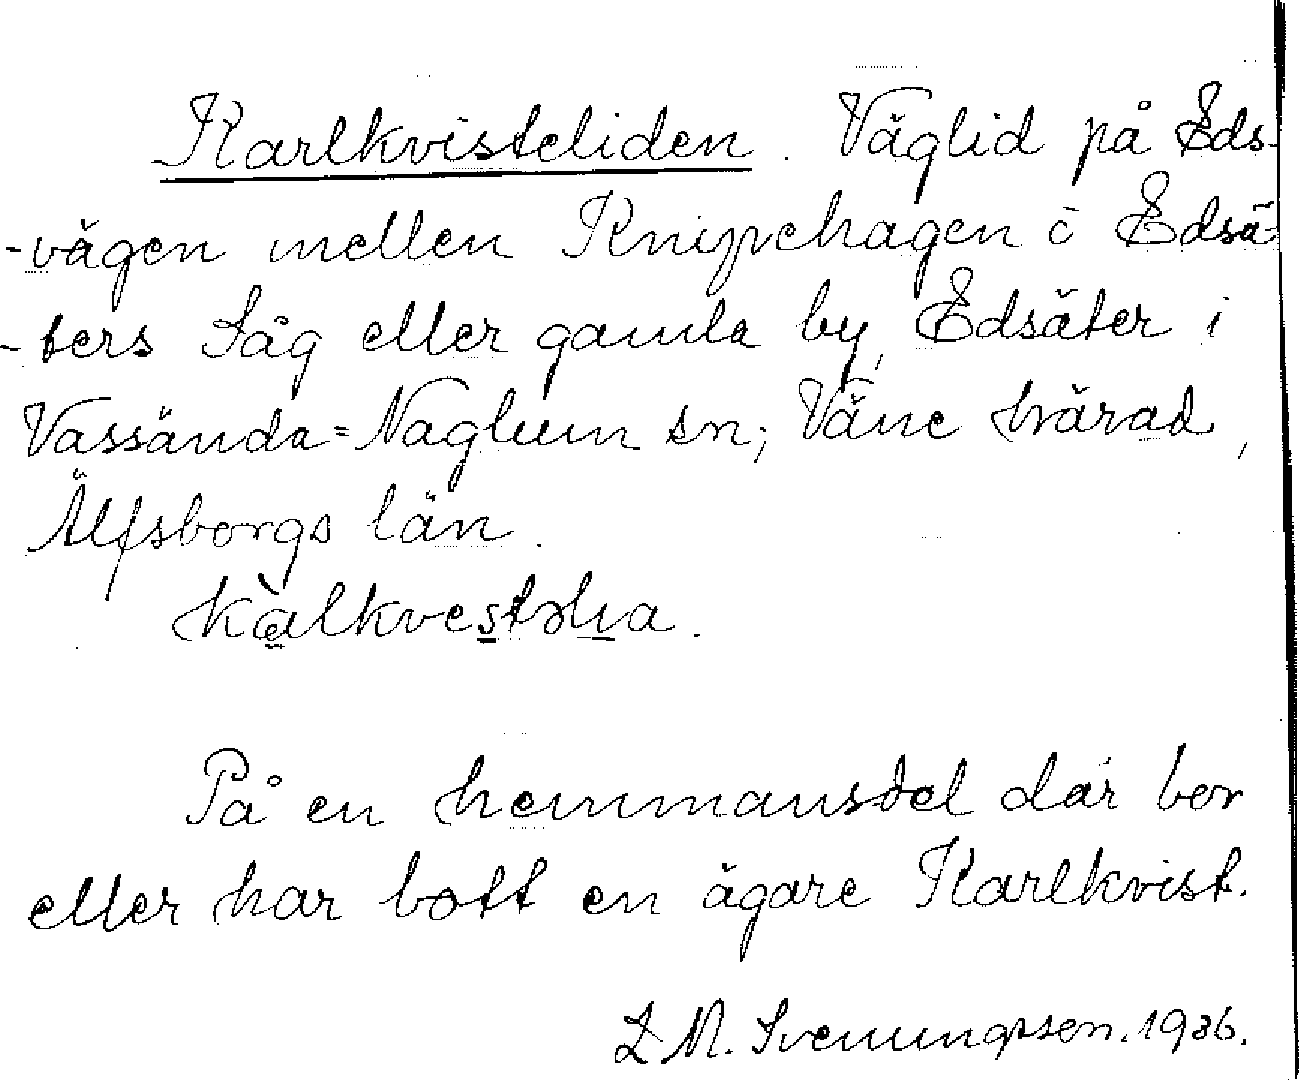 Karlkvisteliden. Väglid på Eds-
-vägen mellen Knipehagen o Edsä-
-ters Såg eller gamla by, Edsäter i
Vassända=Naglum sn; Väne härad,
Älfsborgs län.
På en hemmansdel där bor
eller har bott en ägare Karlkvist.
L M. Svenungsson. 1936.